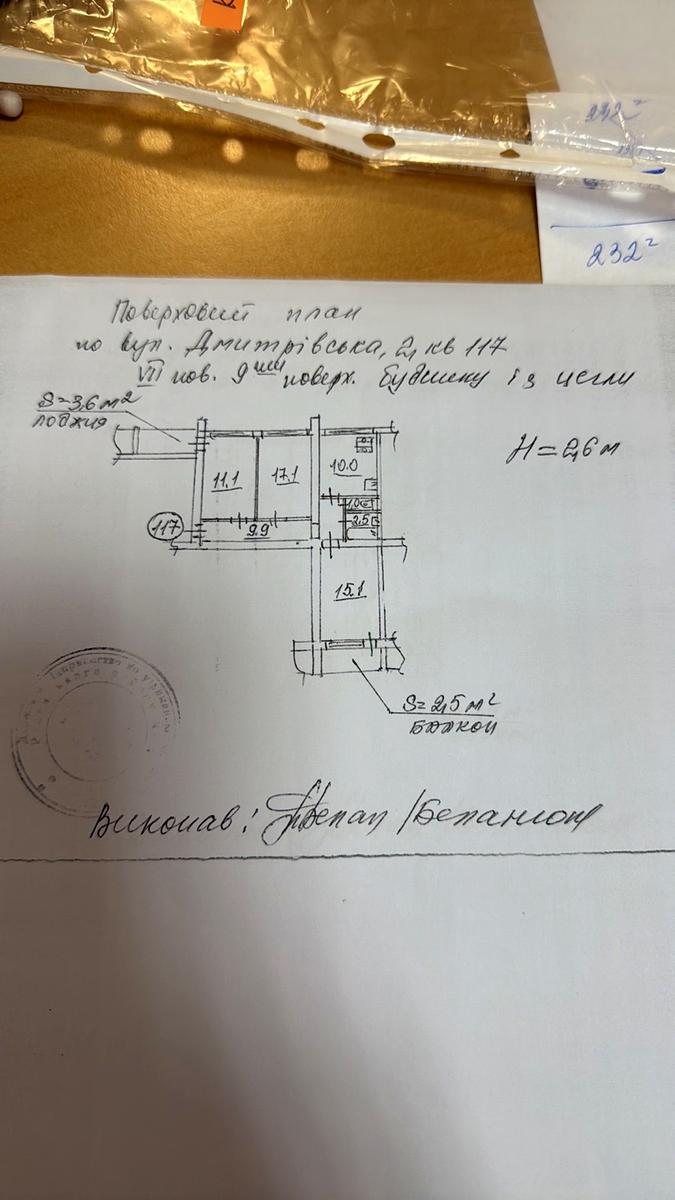 232²
232²
Поверховий план
по вул. Дмитрівська, 2, кв 117
VII пов. 9ти поверх. будинку із цегли
S=3,6 м²
лоджия
H=2,6 м
11.1
17.1
10.0
1.0
2.5
117
9.9
15.1
S=2,5 м²
балкой
Виконав: